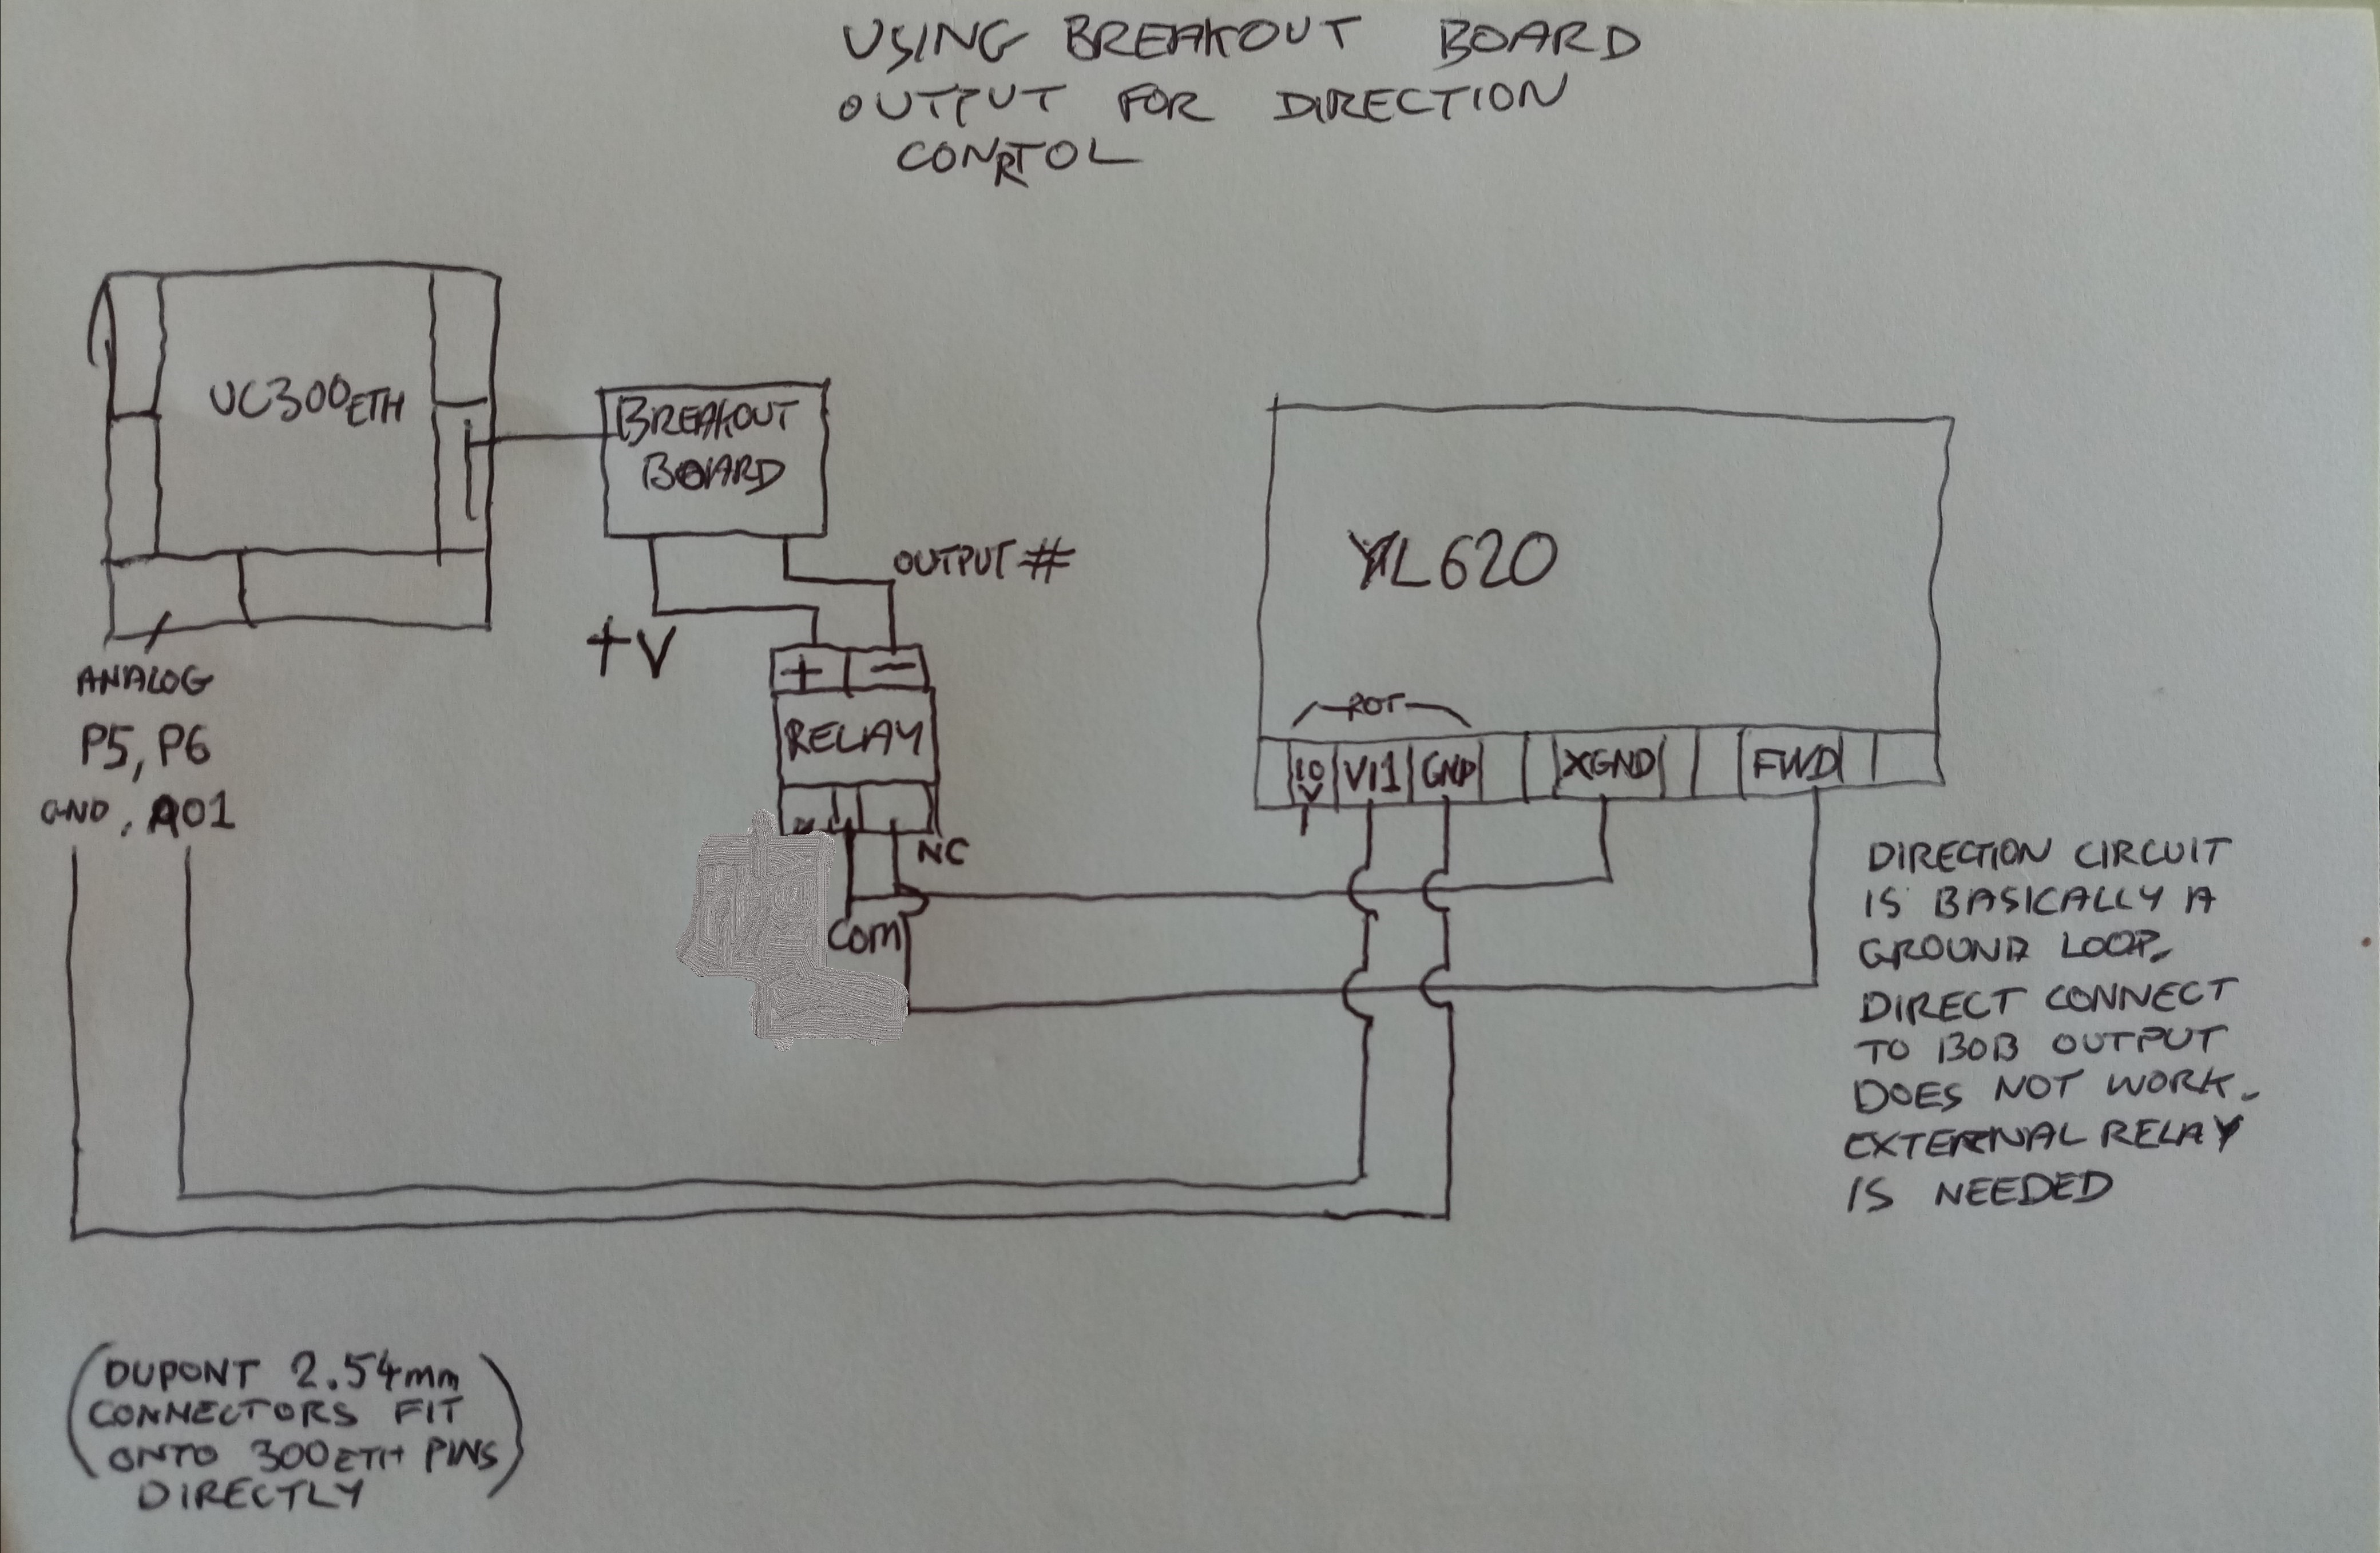 USING BREAKOUT BOARD
OUTPUT FOR DIRECTION
CONRTOL
UC300ETH
BREAKOUT
BOARD
OUTPUT #
+V
+ −
RELAY
NC
COM
ANALOG
P5, P6
GND, AO1
YL620
POT
10V VI1 GND XGND FWD
DIRECTION CIRCUIT
IS BASICALLY A
GROUND LOOP.
DIRECT CONNECT
TO BOB OUTPUT
DOES NOT WORK.
EXTERNAL RELAY
IS NEEDED
(DUPONT 2.54mm
CONNECTORS FIT
ONTO 300ETH PINS)
DIRECTLY